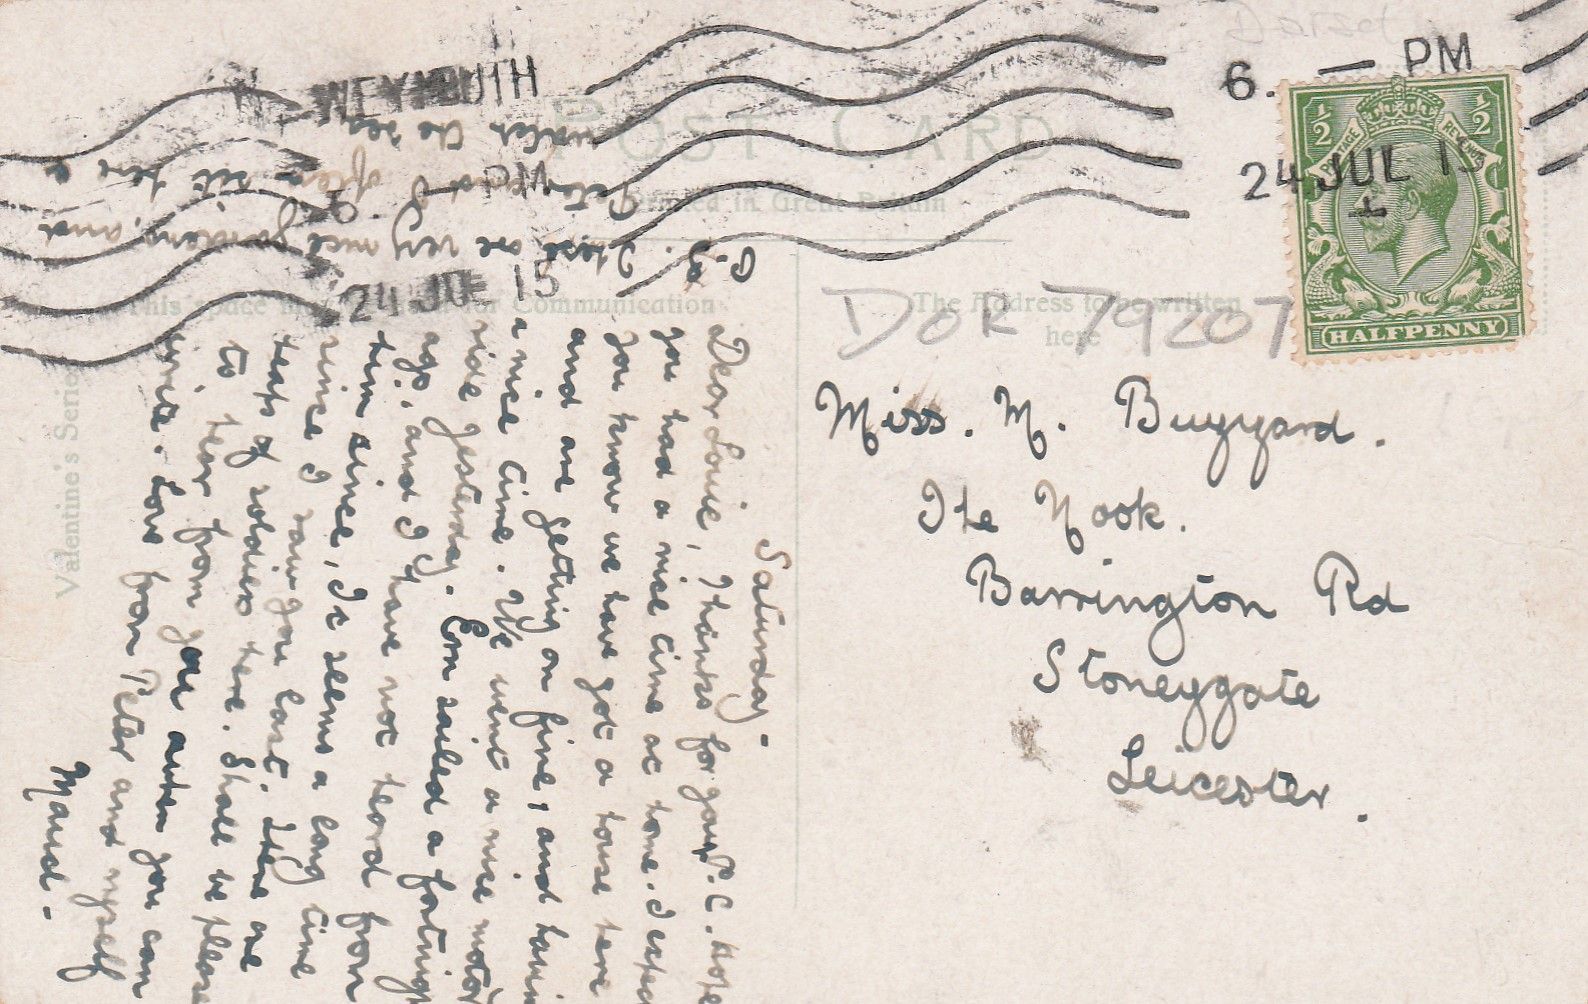 Dorset
WEYMOUTH
24 JUL 15
6. — PM
24 JUL 15
POST CARD
Printed in Great Britain
This space may be used for Communication
The Address to be written
here
Valentine's Series
½ ½
POSTAGE REVENUE
HALFPENNY
DOR 79207
Miss. M. Buzzard.
The Nook.
Barrington Rd
Stoneygate
Leicester.
Saturday -
Dear Louie, Thanks for your P.C. hope
you had a nice time at home. I expect
you know we have got a house here
and are getting on fine, and having
a nice time. We went a nice motor
ride yesterday. Ern sailed a fortnight
ago, and I have not heard from
him since, it seems a long time
since I saw you last. There are
heaps of soldiers here. Shall be pleased
to hear from you when you can
write. Love from Peter and myself
Maud -
P.S. These are very nice gardens, and
Peter and I often sit here to
watch the sea